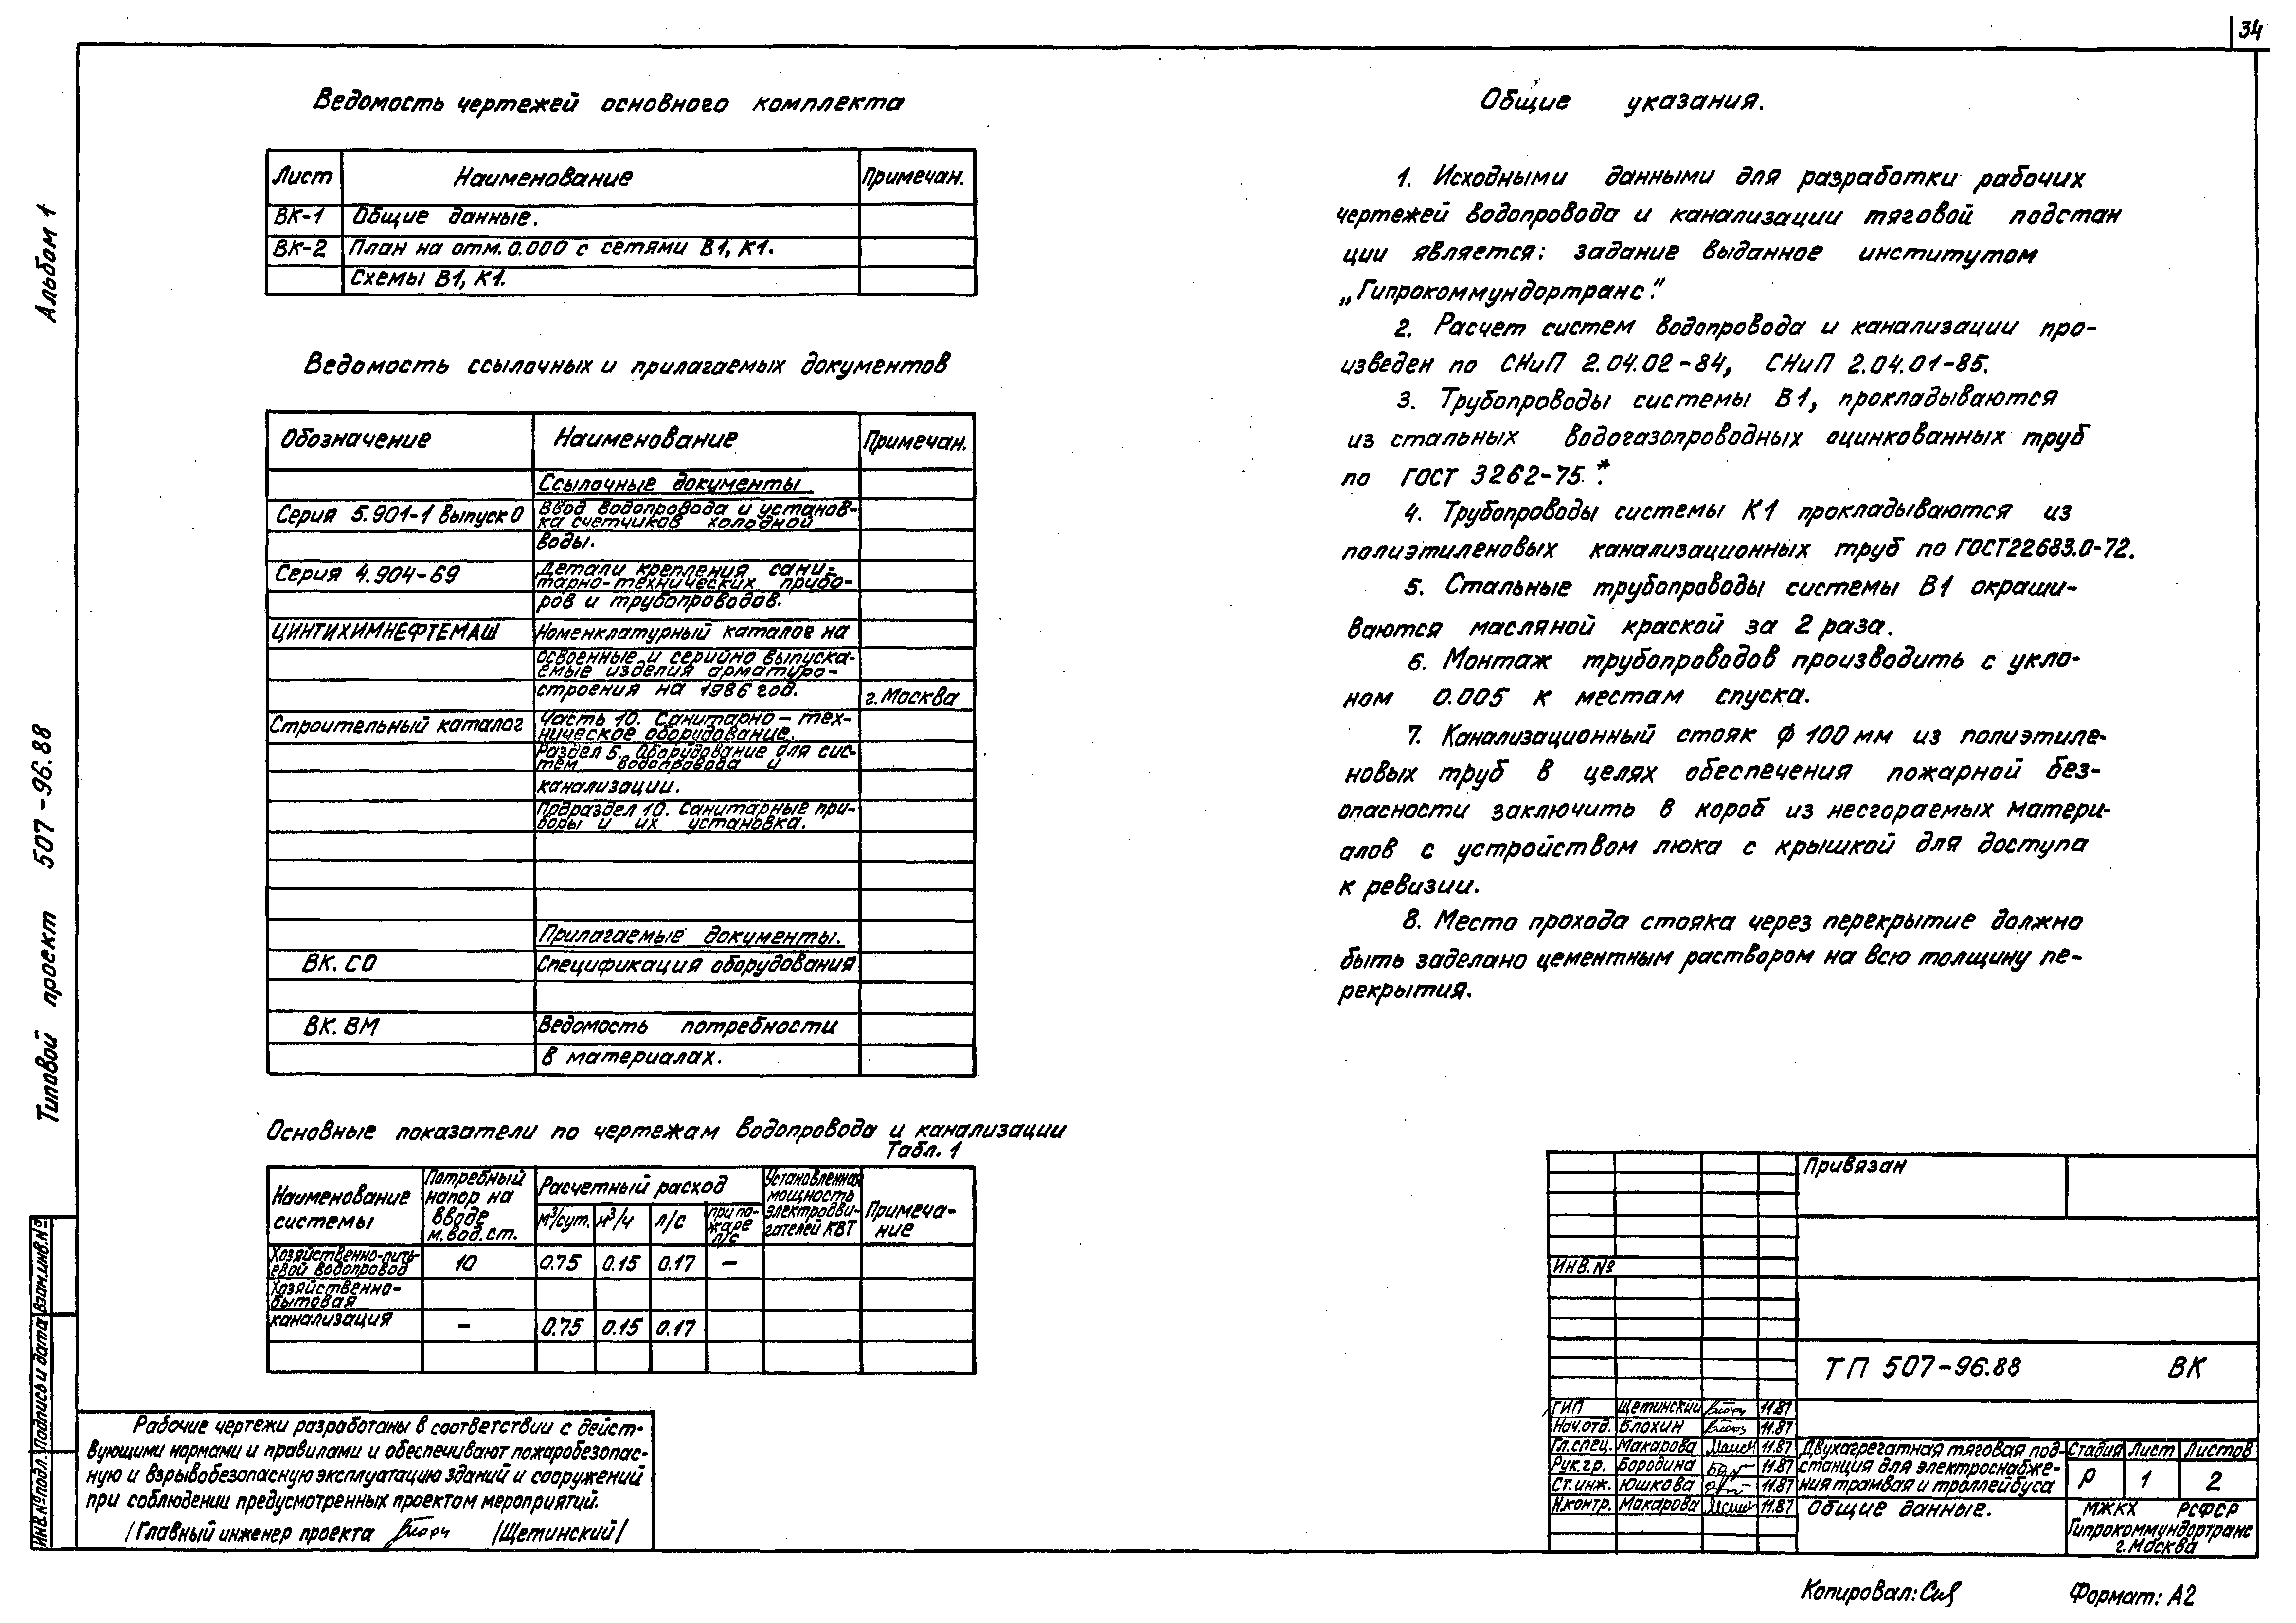 34
Альбом 1
Типовой проект 507-96.88
Ведомость чертежей основного комплекта
Лист Наименование Примечан.
ВК-1 Общие данные.
ВК-2 План на отм. 0.000 с сетями В1, К1.
Схемы В1, К1.
Ведомость ссылочных и прилагаемых документов
Обозначение Наименование Примечан.
Ссылочные документы
Серия 5.901-1 выпуск 0 Ввод водопровода и установ-
ка счетчиков холодной
воды.
Серия 4.904-69 Детали крепления сани-
тарно-технических прибо-
ров и трубопроводов.
ЦИНТИХИМНЕФТЕМАШ Номенклатурный каталог на
освоенные и серийно выпуска-
емые изделия арматуро-
строения на 1986 год. г. Москва
Строительный каталог Часть 10. Санитарно-тех-
ническое оборудование.
Раздел 5. Оборудование для сис-
тем водопровода и
канализации.
Подраздел 10. Санитарные при-
боры и их установка.
Прилагаемые документы.
ВК. СО Спецификация оборудования
ВК. ВМ Ведомость потребности
в материалах.
Основные показатели по чертежам водопровода и канализации
Табл. 1
Наименование системы
Потребный напор на вводе м. вод. ст.
Расчетный расход
м³/сут. м³/ч л/с при по-жаре л/с
Установленная мощность электродви-гателей КВТ
Примеча-ние
Хозяйственно-пить-
евой водопровод 10 0.75 0.15 0.17 –
Хозяйственно-
бытовая
канализация – 0.75 0.15 0.17
Рабочие чертежи разработаны в соответствии с дейст-
вующими нормами и правилами и обеспечивают пожаробезопас-
ную и взрывобезопасную эксплуатацию зданий и сооружений
при соблюдении предусмотренных проектом мероприятий.
/Главный инженер проекта /Щетинский/
Инв. № подл. Подпись и дата Взам. инв. №
Общие указания.
1. Исходными данными для разработки рабочих
чертежей водопровода и канализации тяговой подстан
ции является: задание выданное институтом
„Гипрокоммундортранс".
2. Расчет систем водопровода и канализации про-
изведен по СНиП 2.04.02-84, СНиП 2.04.01-85.
3. Трубопроводы системы В1, прокладываются
из стальных водогазопроводных оцинкованных труб
по ГОСТ 3262-75.*
4. Трубопроводы системы К1 прокладываются из
полиэтиленовых канализационных труб по ГОСТ22683.0-72.
5. Стальные трубопроводы системы В1 окраши-
ваются масляной краской за 2 раза.
6. Монтаж трубопроводов производить с укло-
ном 0.005 к местам спуска.
7. Канализационный стояк ф 100 мм из полиэтиле-
новых труб в целях обеспечения пожарной без-
опасности заключить в короб из несгораемых матери-
алов с устройством люка с крышкой для доступа
к ревизии.
8. Место прохода стояка через перекрытие должно
быть заделано цементным раствором на всю толщину пе-
рекрытия.
Привязан
Инв. №
ТП 507-96.88 ВК
ГИП Щетинский 11.87
Нач.отд. Блохин 11.87
Гл.спец. Макарова 11.87
Рук.гр. Бородина 11.87
Ст.инж. Юшкова 11.87
Н.контр. Макарова 11.87
Двухагрегатная тяговая под-
станция для электроснабже-
ния трамвая и троллейбуса
Стадия Лист Листов
Р 1 2
Общие данные.
МЖКХ РСФСР
Гипрокоммундортранс
г. Москва
Копировал: Формат: А2